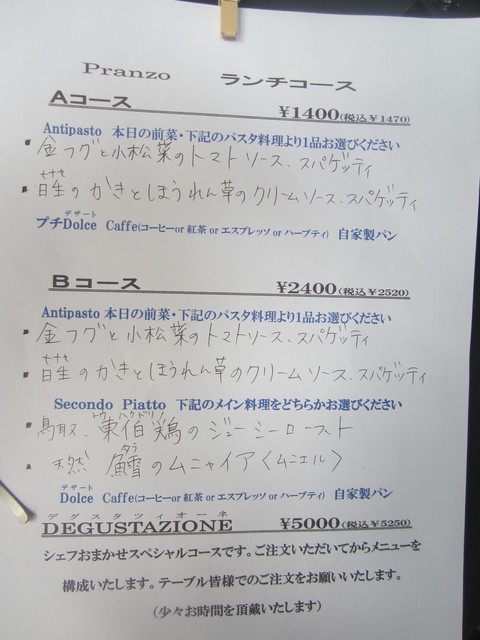 Pranzo ランチコース
Aコース ¥1400(税込¥1470)
Antipasto 本日の前菜・下記のパスタ料理より1品お選びください
・金フグと小松菜のトマトソース、スパゲッティ
・のかきとほうれん草のクリームソース、スパゲッティ
デザート
プチDolce Caffe(コーヒーor 紅茶 or エスプレッソ or ハーブティ) 自家製パン
Bコース ¥2400(税込¥2520)
Antipasto 本日の前菜・下記のパスタ料理より1品お選びください
・金フグと小松菜のトマトソース、スパゲッティ
・のかきとほうれん草のクリームソース、スパゲッティ
Secondo Piatto 下記のメイン料理をどちらかお選びください
・鳥取、東伯鶏のジューシーロースト
タラ
・天然 鱈のムニャイア〈ムニエル〉
デザート
Dolce Caffe(コーヒー or 紅茶 or エスプレッソ or ハーブティ) 自家製パン
デグスタツィオーネ
DEGUSTAZIONE ¥5000(税込¥5250)
シェフおまかせスペシャルコースです。ご注文いただいてからメニューを
構成いたします。テーブル皆様でのご注文をお願いいたします。
(少々お時間を頂戴いたします)